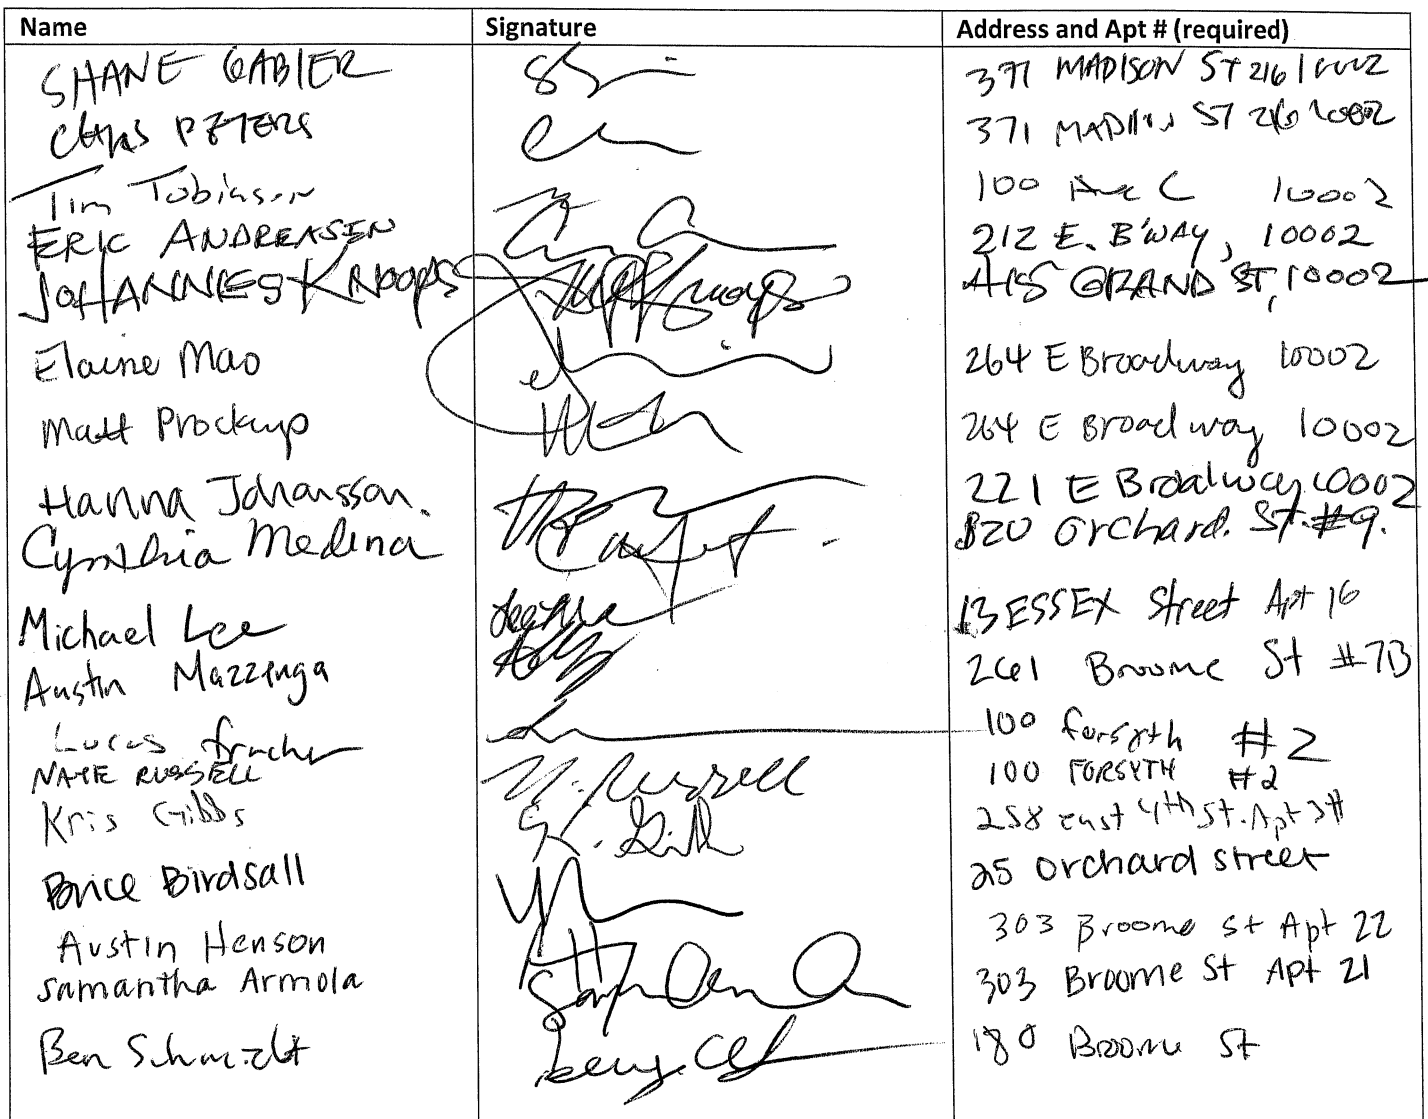 Name Signature Address and Apt # (required)
SHANE GABIER 371 MADISON ST 216 10002
CHRIS PETERS 371 MADISON ST 216 10002
Tim Tobinson 100 Ave C 10002
ERIC ANDREASEN 212 E. B'WAY, 10002
JOHANNES KNOOPS 415 GRAND ST, 10002
Elaine Mao 264 E Broadway 10002
Matt Prockup 264 E Broadway 10002
Hanna Johansson. 221 E Broadway 10002
Cynthia Medina Orchard. St. #9.
Michael Lee 13 ESSEX Street Apt 16
Austin Mazzenga 261 Broome St #7B
Lucas 100 forsyth #2
NATE RUSSELL N. Russell 100 FORSYTH #2
Kris Gibbs K. Gibb 258 east 4th St. Apt
Brice Birdsall 25 Orchard street
Austin Henson 303 Broome St Apt 22
Samantha Armola 303 Broome St Apt 21
Ben Schmidt 180 Broome St